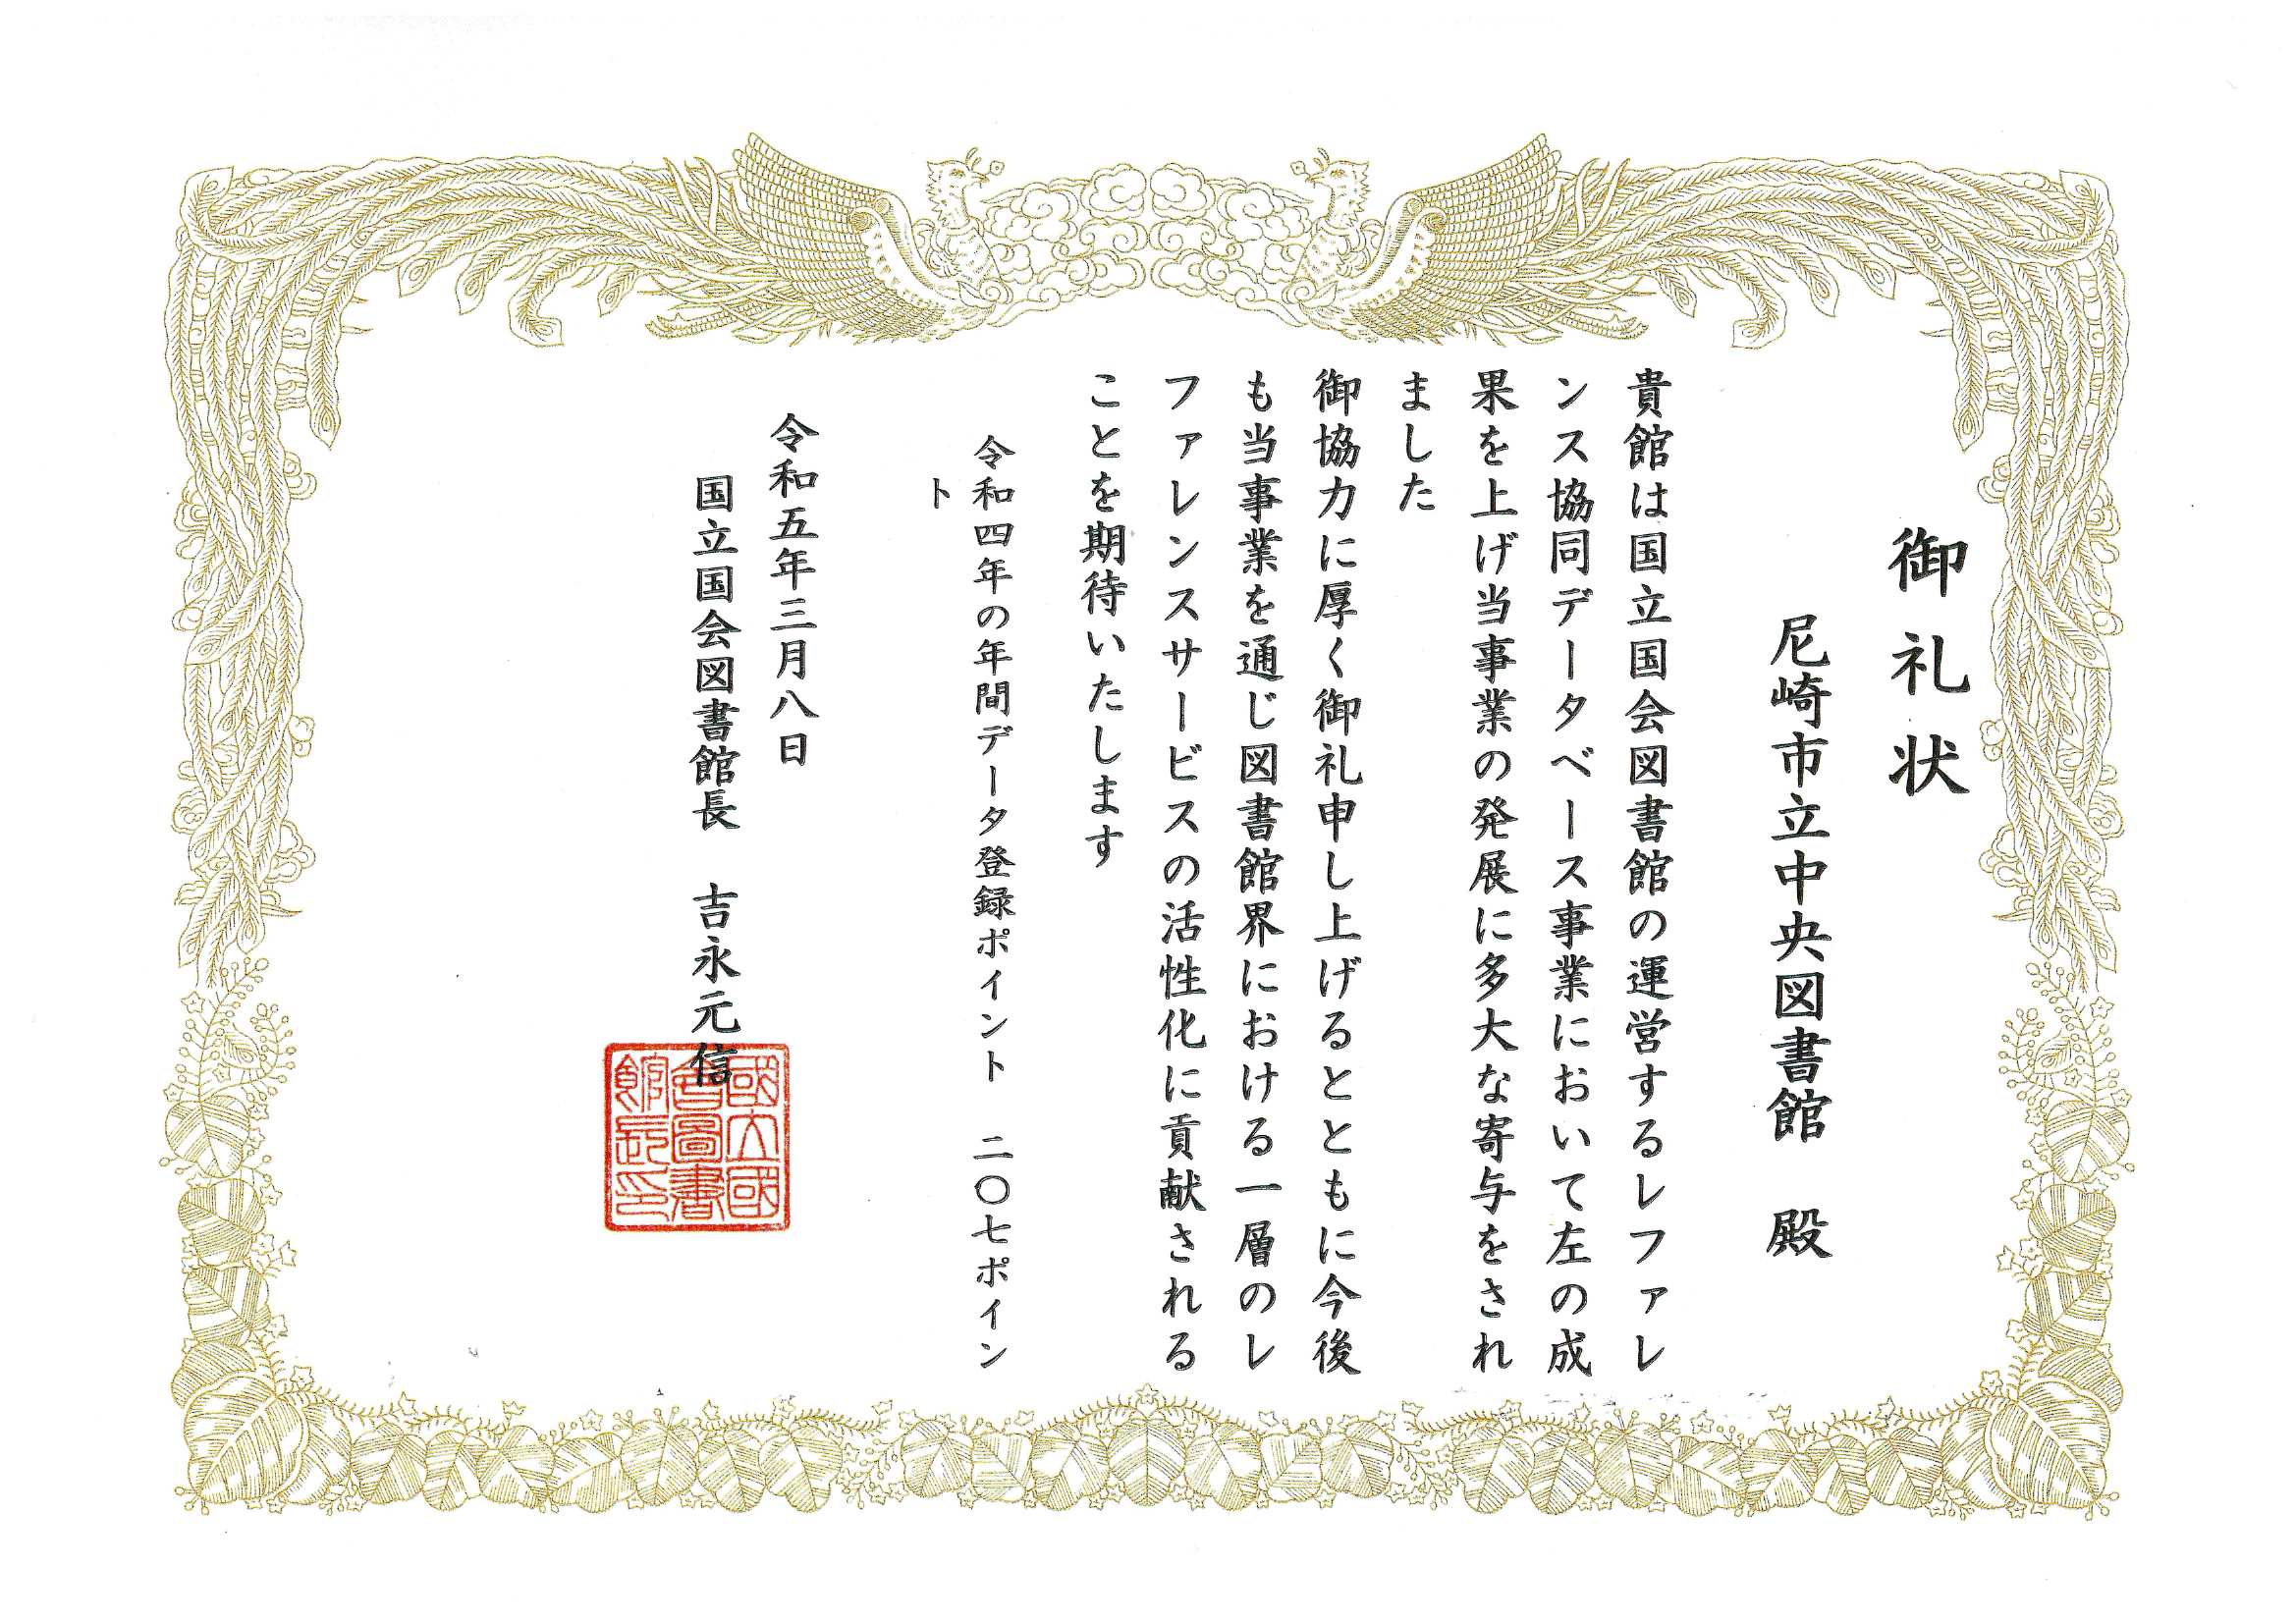 御礼状
尼崎市立中央図書館　殿
貴館は国立国会図書館の運営するレファレ
ンス協同データベース事業において左の成
果を上げ当事業の発展に多大な寄与をされ
ました
御協力に厚く御礼申し上げるとともに今後
も当事業を通じ図書館界における一層のレ
ファレンスサービスの活性化に貢献される
ことを期待いたします
令和四年の年間データ登録ポイント　二〇七ポイン
ト
令和五年三月八日
国立国会図書館長　吉永元信
國立國
會圖書
館長印